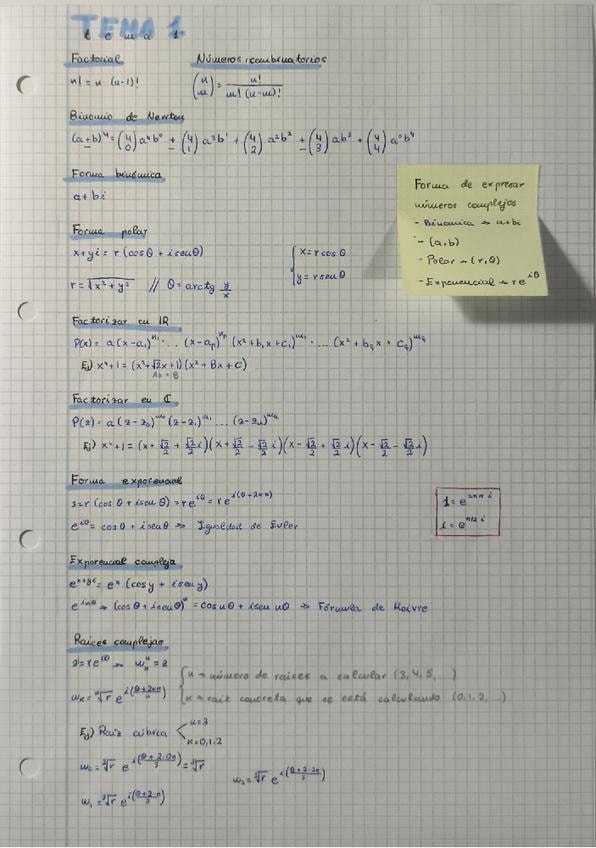 TEMA 1
tema 1
Factorial
Números combinatorios
n! = n (n-1)!
(n m) = n! / m! (n-m)!
Binomio de Newton
(a+b)⁴ = (4 0) a⁴b⁰ + (4 1) a³b¹ + (4 2) a²b² + (4 3) ab³ + (4 4) a⁰b⁴
Forma binómica
a + bi
Forma de expresar
números complejos
- Binomica → a+bi
- (a,b)
- Polar → (r,θ)
- Exponencial → r e^{iθ}
Forma polar
x+yi = r (cos θ + i sen θ)
{ x = r cos θ
y = r sen θ
r = √(x² + y²) // θ = arctg y/x
Factorizar en ℝ
P(x) = a (x-a₁)^{n₁} ... (x-a_p)^{n_p} (x²+b₁x+c₁)^{m₁} · ... (x² + b_q x + c_q)^{m_q}
Ej) x⁴+1 = (x²+√2x+1)(x² + Bx + C)
Factorizar en ℂ
P(z) = a (z-z₀)^{m₀} (z-z₁)^{m₁} ... (z-z_n)^{m_n}
Ej) x⁴+1 = (x + √2/2 + √2/2 i)(x + √2/2 - √2/2 i)(x - √2/2 + √2/2 i)(x - √2/2 - √2/2 i)
Forma exponencial
z = r (cos θ + i sen θ) = r e^{iθ} = r e^{i(θ+2kπ)}
e^{iθ} = cos θ + i sen θ → Igualdad de Euler
1 = e^{2πn i}
i = e^{π/2 i}
Exponencial compleja
e^{x+yi} = e^x (cos y + i sen y)
e^{inθ} → (cos θ + i sen θ)^n = cos nθ + i sen nθ → Fórmula de Moivre
Raices complejas
z = r e^{iθ} → w_k^n = z
w_k = ⁿ√r e^{i((θ+2kπ)/n)}
{ n → número de raices a calcular (3, 4, 5, ...)
k → raiz concreta que se está calculando (0, 1, 2, ...)
Ej) Raiz cúbica
n = 3
k = 0, 1, 2
w₀ = ³√r e^{i((θ+2·0π)/3)} = ³√r
w₂ = ³√r e^{i((θ+2·2π)/3)}
w₁ = ³√r e^{i((θ+2·π)/3)}